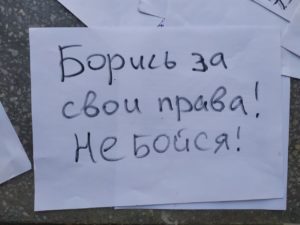 Борись за
свои права!
Не бойся!